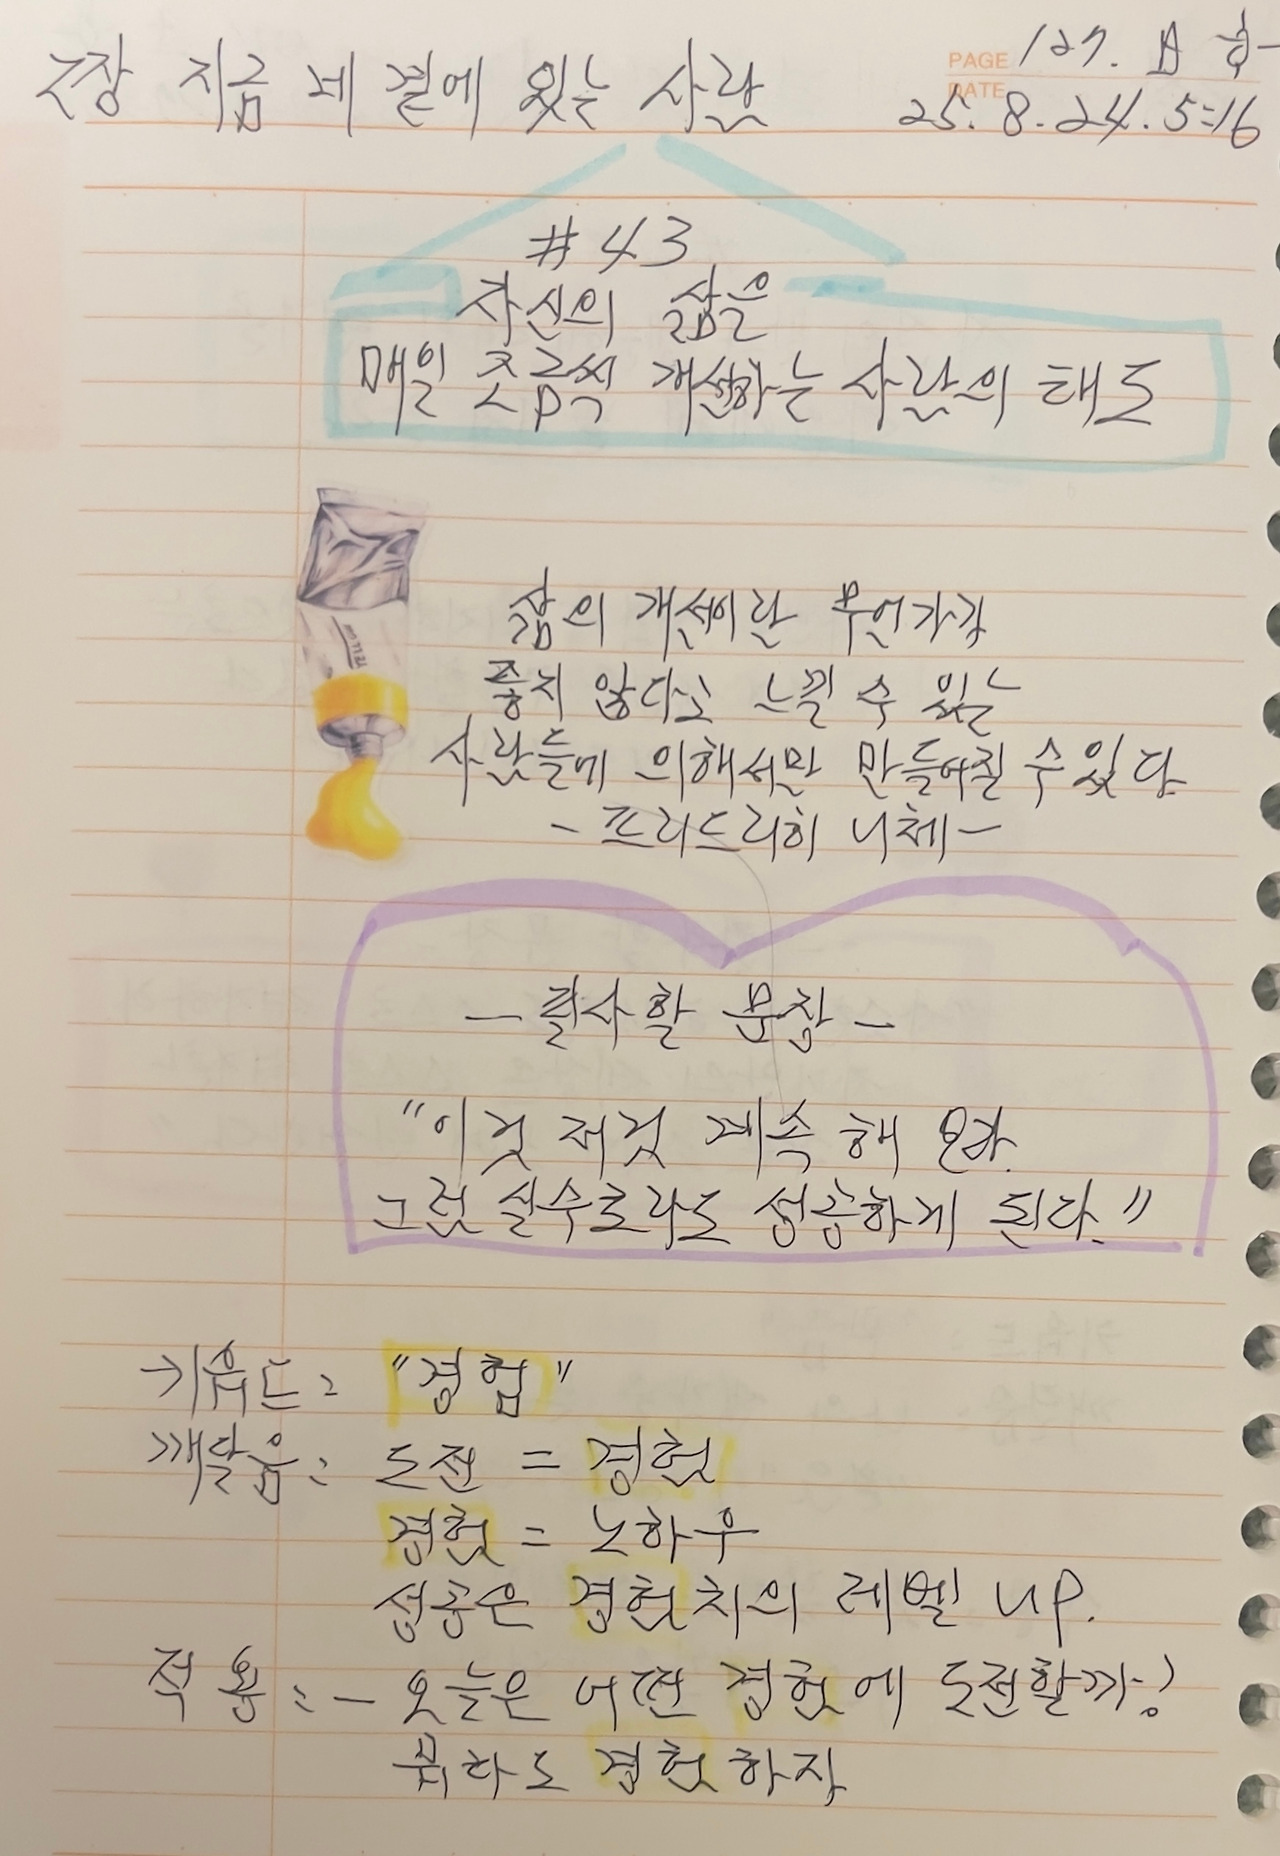 2장 지금 네 곁에 있는 사람
PAGE 127.
DATE 25. 8. 24. 5:16
#43
자신의 삶을
매일 조금씩 개선하는 사람의 태도
삶의 개선이란 무언가가
좋지 않다고 느낄 수 있는
사람들에 의해서만 만들어질 수 있다
- 프리드리히 니체 -
- 필사할 문장 -
"이것 저것 계속 해 보라.
그럼 실수로라도 성공하게 된다."
키워드: "경험"
깨달음: 도전 = 경험
경험 = 노하우
성공은 경험치의 레벨 up.
적용: - 오늘은 어떤 경험에 도전할까?
뭐라도 경험하자